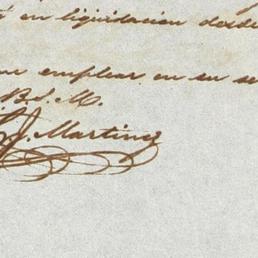 en liquidacion desde
emplear en su se
B. S. M.
J. Martinez